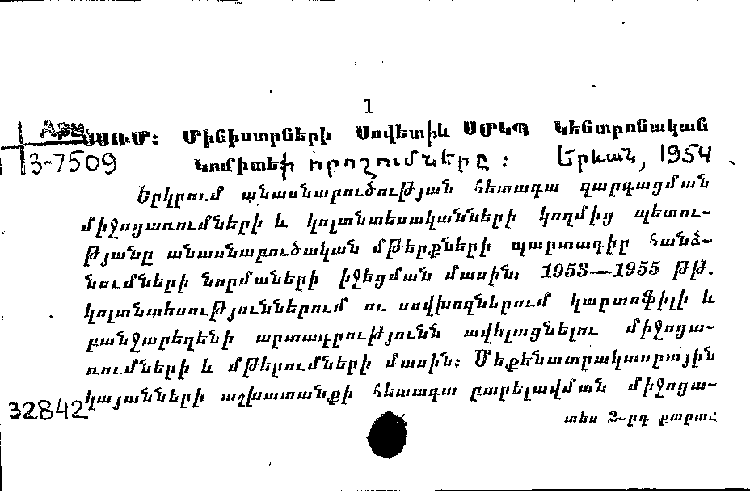 1
Арм
3-7509
ՍՍՌՄ: Մինիստրների Սովետիև ՍՄԿՊ Կենտրոնական
Կոմիտեի որոշումները: Երևան, 1954
Երկրում անասնաբուծության հետագա զարգացման
միջոցառումների և կոլտնտեսականների կողմից պետու-
թյանը անասնաբուծական մթերքների պարտադիր հանձ-
նումների նորմաների իջեցման մասին: 1953—1955 թթ.
կոլտնտեսություններում ու սովխոզներում կարտոֆիլի և
բանջարեղենի արտադրությունն ավելացնելու միջոցա-
ռումների և մթերումների մասին: Մեքենատրակտորային
կայանների աշխատանքի հետագա բարելավման միջոցա-
32842
տես 2-րդ քարտ